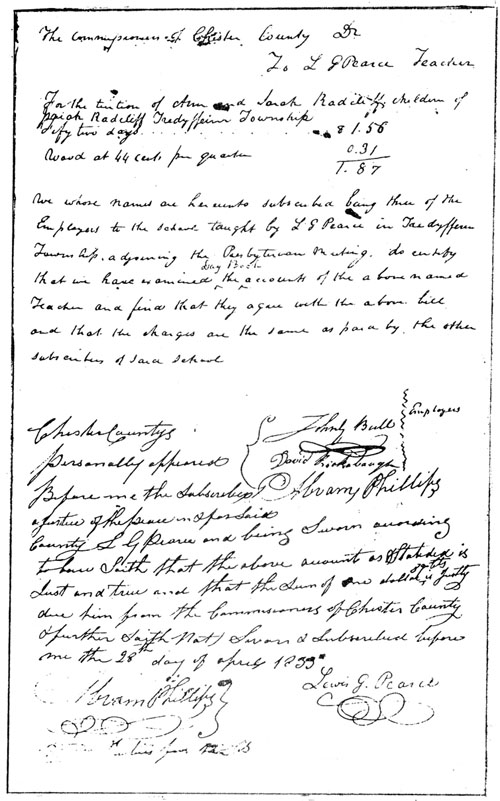 The commissioners of Chester County Dr
To L G Pearce Teacher
For the tuition of Ann and Sarah Radcliff, children of
Radcliff Tredyffrin Township
Fifty two days $ 1.56
Wood at 44 cents per quarter 0.31
1.87
We whose names are hereunto subscribed being three of the
Employers to the school taught by L G Pearce in Tredyffrin
Township, adjoining the Presbyterian Meeting. do certify
Day Book
that we have examined the accounts of the above named
Teacher and find that they agree with the above bill
and that the charges are the same as paid by the other
subscribers of said school
Employers
John Bull
David
Abram Phillips
Chester County
personally appeared
Before me the Subscriber
a Justice of the peace in & for Said
County L G Pearce and being Sworn according
to law Saith that the above account as Stated is
Just and true and that the Sum of one dollar is Justly
due him from the Commissioners of Chester County
& further Saith Not Sworn & Subscribed before
me the 28th day of April 1833
Abram Phillips
Lewis G. Pearce